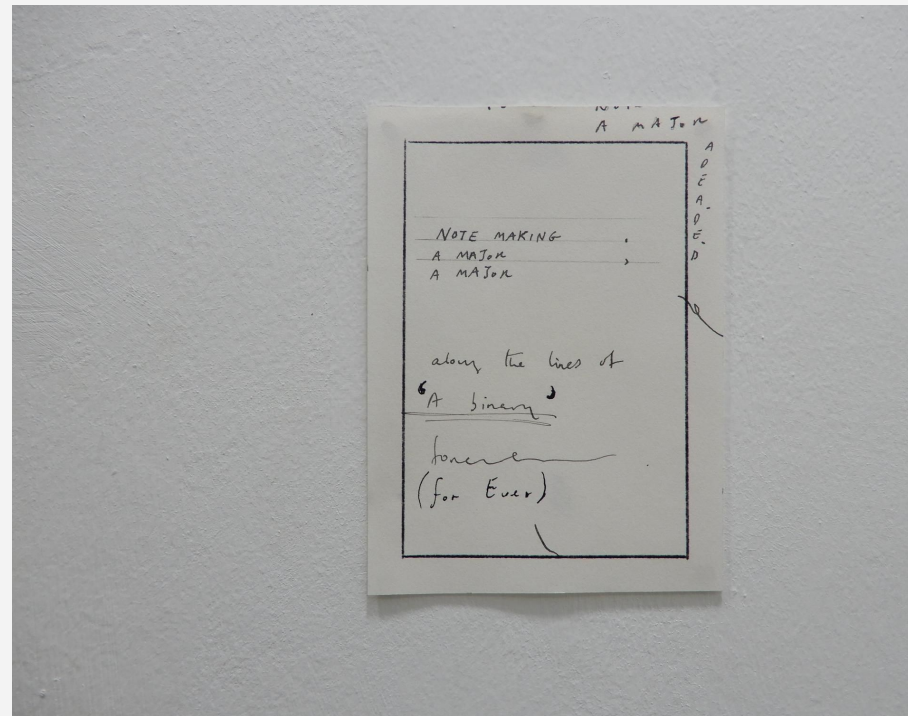 A MAJOR
A
D
E
A.
D
E.
D
NOTE MAKING .
A MAJOR ,
A MAJOR
along the lines of
‘A binary’
(for Ever)